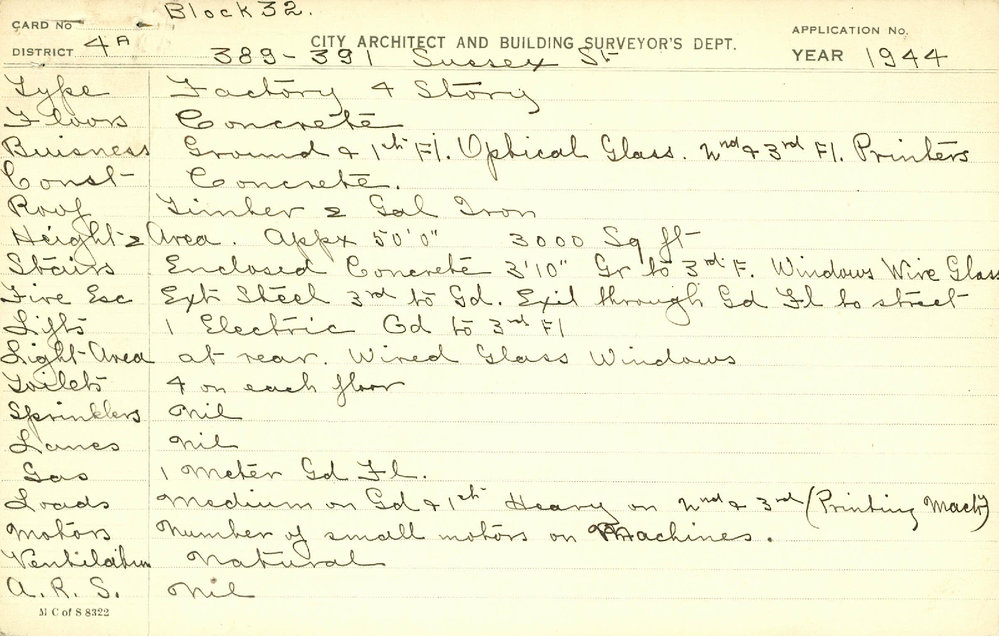 Block 32.
CARD No
APPLICATION No.
DISTRICT 4A
CITY ARCHITECT AND BUILDING SURVEYOR'S DEPT.
YEAR 1944
389-391 Sussex St
Type Factory 4 Story
Floors Concrete
Buisness Ground & 1st Fl. Optical Glass. 2nd & 3rd Fl. Printers
Const Concrete.
Roof Timber & Gal Iron
Height & Area. Appx 50'0" 3000 Sq ft
Stairs Enclosed Concrete 3'10" Gr to 3rd F. Windows Wire Glass
Fire Esc Ext Steel 3rd to Gd. Exit through Gd Fl to street
Lifts 1 Electric Gd to 3rd Fl
Light Area at rear. Wired Glass Windows
Toilets 4 on each floor
Sprinklers Nil
Lanes Nil
Gas 1 Meter Gd Fl.
Loads Medium on Gd & 1st Heavy on 2nd & 3rd (Printing Mach'y)
Motors Number of small motors on Machines.
Ventilation Natural
A.R.S. Nil
M C of S 8322